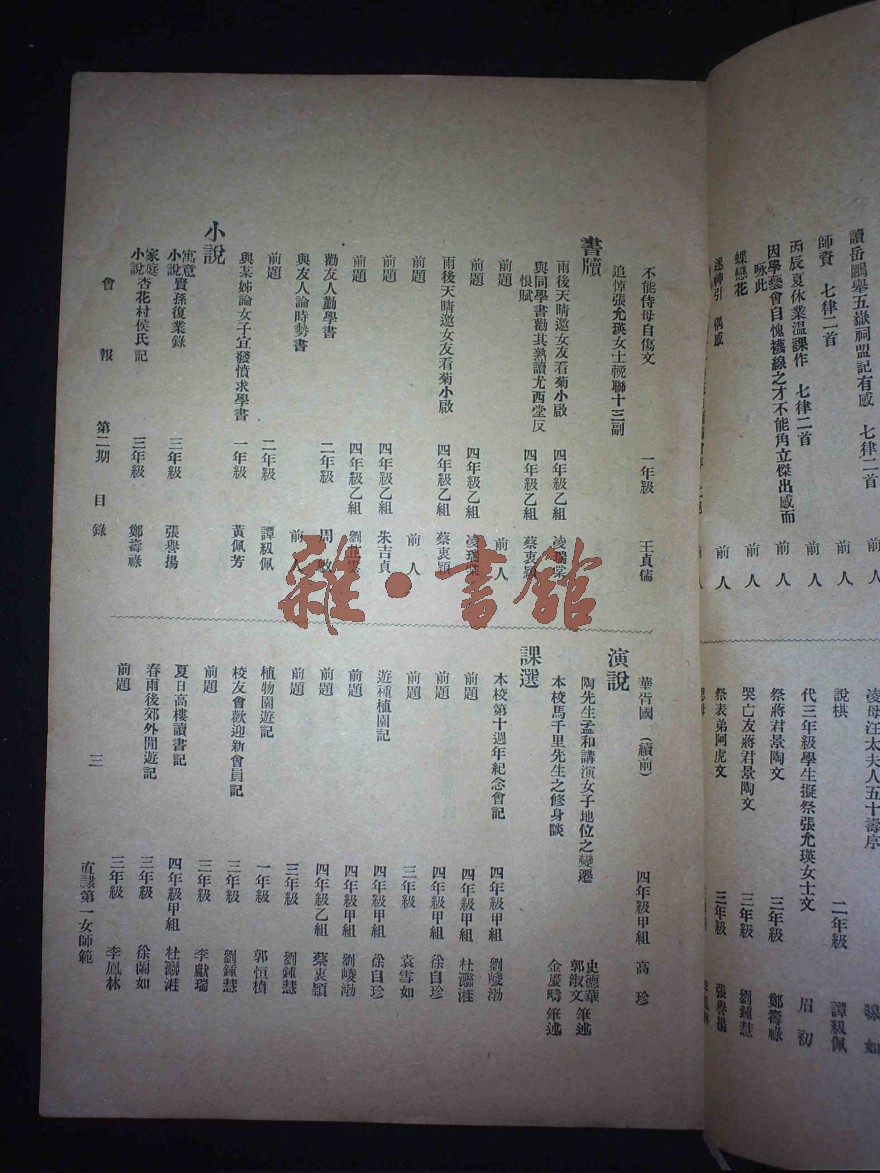 讀岳鵬舉五嶽祠盟記有感　七律二首　前人
師賚　七律二首　前人
丙辰夏休業温課作　七律二首　前人
因學藝會自愧襪線之才不能角立傑出感而
詠此　前人
蝶戀花　前人
迷神引　偶感　前人
凌母汪太夫人五十壽序
說棋　二年級　譚級佩
代三年級學生擬祭張允瑛女士文　眉初
祭蔣君景陶文　三年級　鄭壽祿
哭亡友蔣君景陶文　三年級　劉鍾慧
祭表弟阿虎文　三年級　張譽揚
不能侍母自傷文　一年級　王貞儒
追悼張允瑛女士輓聯十三副
書牘
雨後天晴邀女友看菊小啟　四年級乙組　凌瑞棠
與同學書勸其熟讀尤西堂反
恨賦　四年級乙組　蔡衷穎
前題　前人
前題　四年級乙組　凌瑞棠
雨後天晴邀女友看菊小啟　四年級乙組　蔡衷穎
前題　前人
前題　四年級乙組　朱吉貞
前題　四年級乙組　劉
勸友人勤學書　二年級　周敏
與友人論時勢書　前人
前題　二年級　譚級佩
與某姊論女子宜發憤求學書　一年級　黃佩芳
小說
寓意小說賢孫復業錄　三年級　張譽揚
家庭小說杏花村侯氏記　三年級　鄭壽祿
會報　第二期　目錄
華胥國（續前）　四年級甲組　高珍
演說
陶先生孟和講演女子地位之變遷　史德華　郭淑文　筆述
本校馬千里先生之修身談　金慶疇　筆述
課選
本校第十週年紀念會記　四年級甲組　劉峻渤
前題　四年級甲組　杜灝漄
前題　四年級甲組　徐自珍
前題　三年級　袁雪如
遊種植園記　四年級甲組　徐自珍
前題　四年級甲組　劉峻渤
前題　四年級乙組　蔡衷穎
前題　三年級　劉鍾慧
植物園遊記　一年級　郭恒楨
校友會歡迎新會員記　三年級　劉鍾慧
前題　三年級　李獻瑞
夏日高樓讀書記　四年級甲組　杜灝漄
春雨後郊外閒遊記　三年級　徐關如
前題　三年級　李鳳林
三
直隸第一女師範
雜·書館